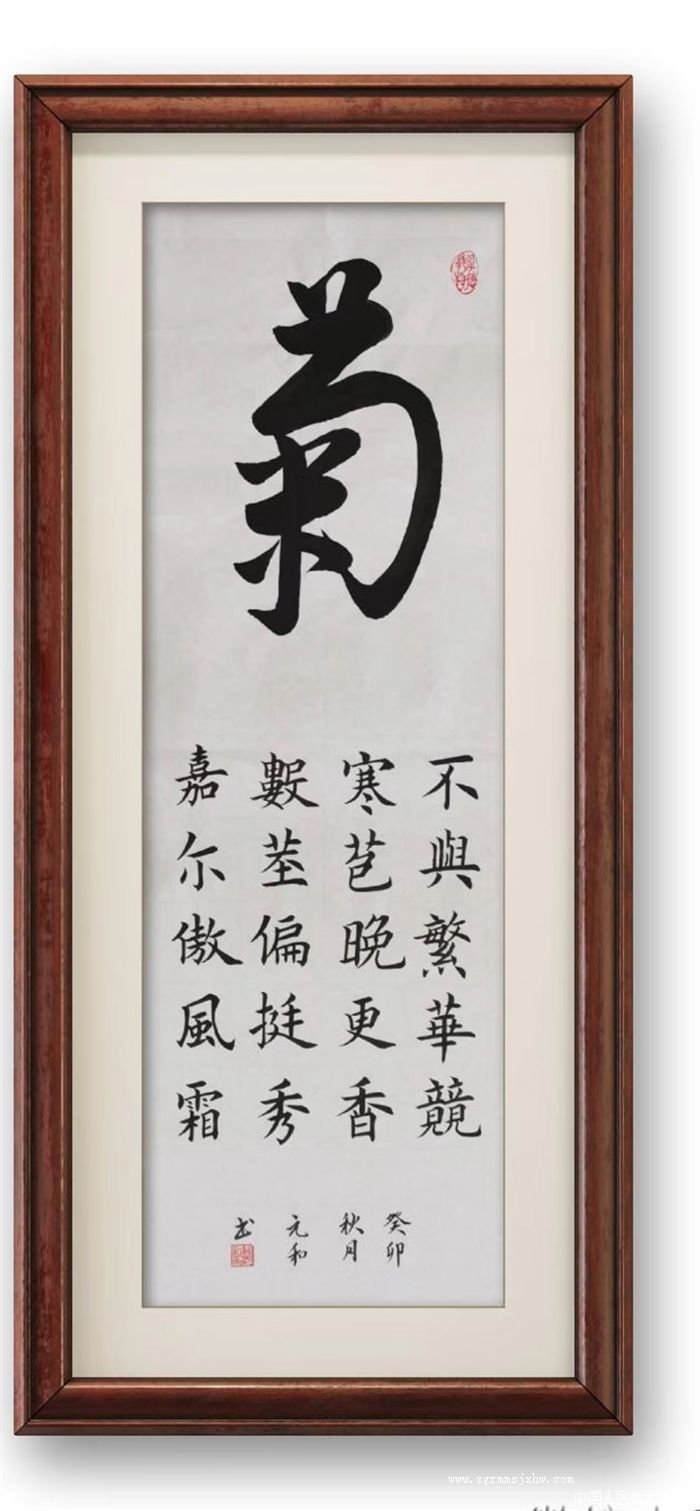 菊
不與繁華競
寒苞晚更香
數莖偏挺秀
嘉尔傲風霜
癸卯
秋月
元和
书
www.zgrmmsjxhw.com